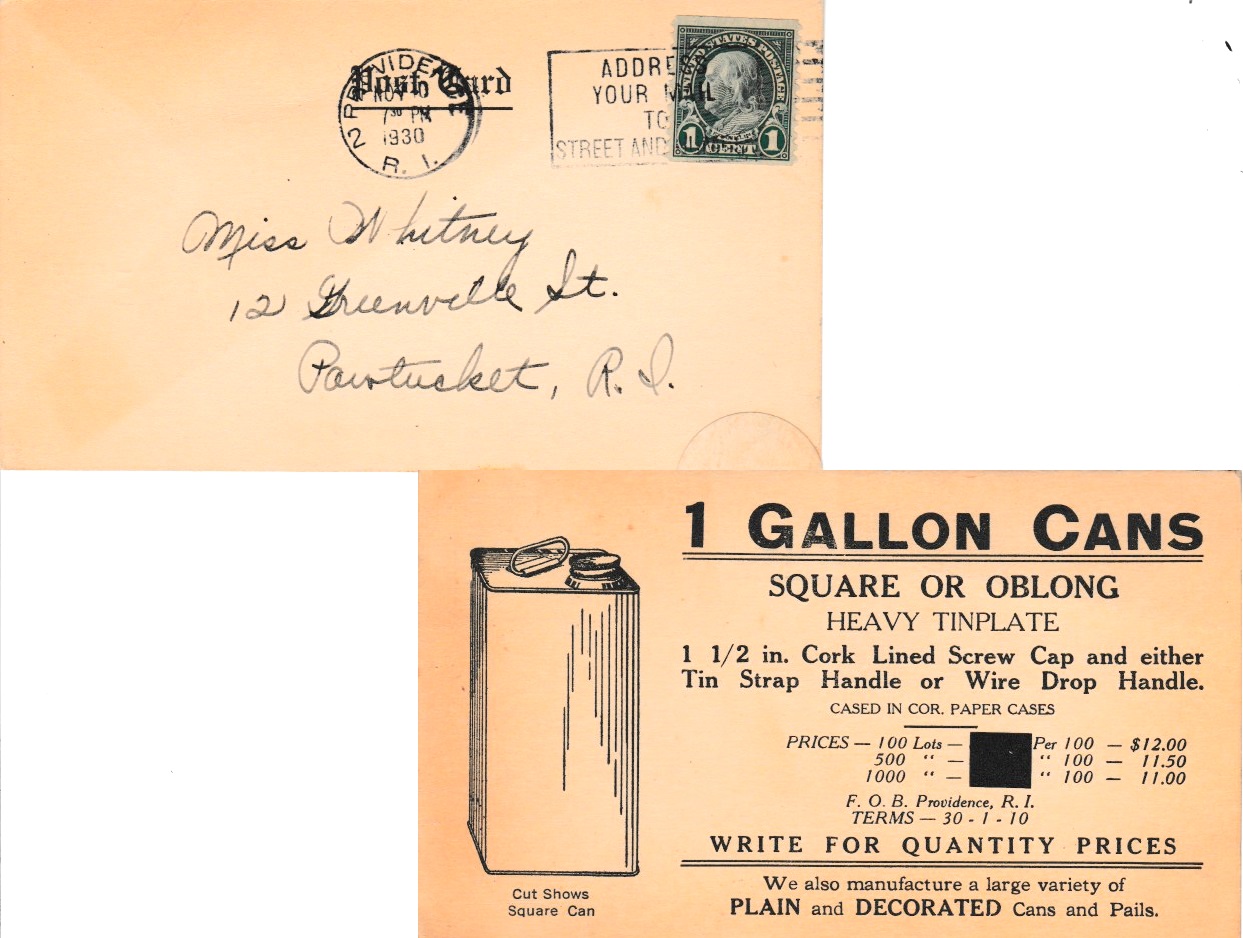 Post Card
2 PROVIDENCE
NOV 10
7 30 PM
1930
R. I.
ADDRESS
YOUR MAIL
TO
STREET AND
UNITED STATES POSTAGE
FRANKLIN
1 CENT 1
Miss Whitney
12 Greenville St.
Pawtucket, R. I.
1 GALLON CANS
SQUARE OR OBLONG
HEAVY TINPLATE
1 1/2 in. Cork Lined Screw Cap and either
Tin Strap Handle or Wire Drop Handle.
CASED IN COR. PAPER CASES
PRICES — 100 Lots — Per 100 — $12.00
500 “ — “ 100 — 11.50
1000 “ — “ 100 — 11.00
F. O. B. Providence, R. I.
TERMS — 30 - 1 - 10
WRITE FOR QUANTITY PRICES
We also manufacture a large variety of
PLAIN and DECORATED Cans and Pails.
Cut Shows
Square Can